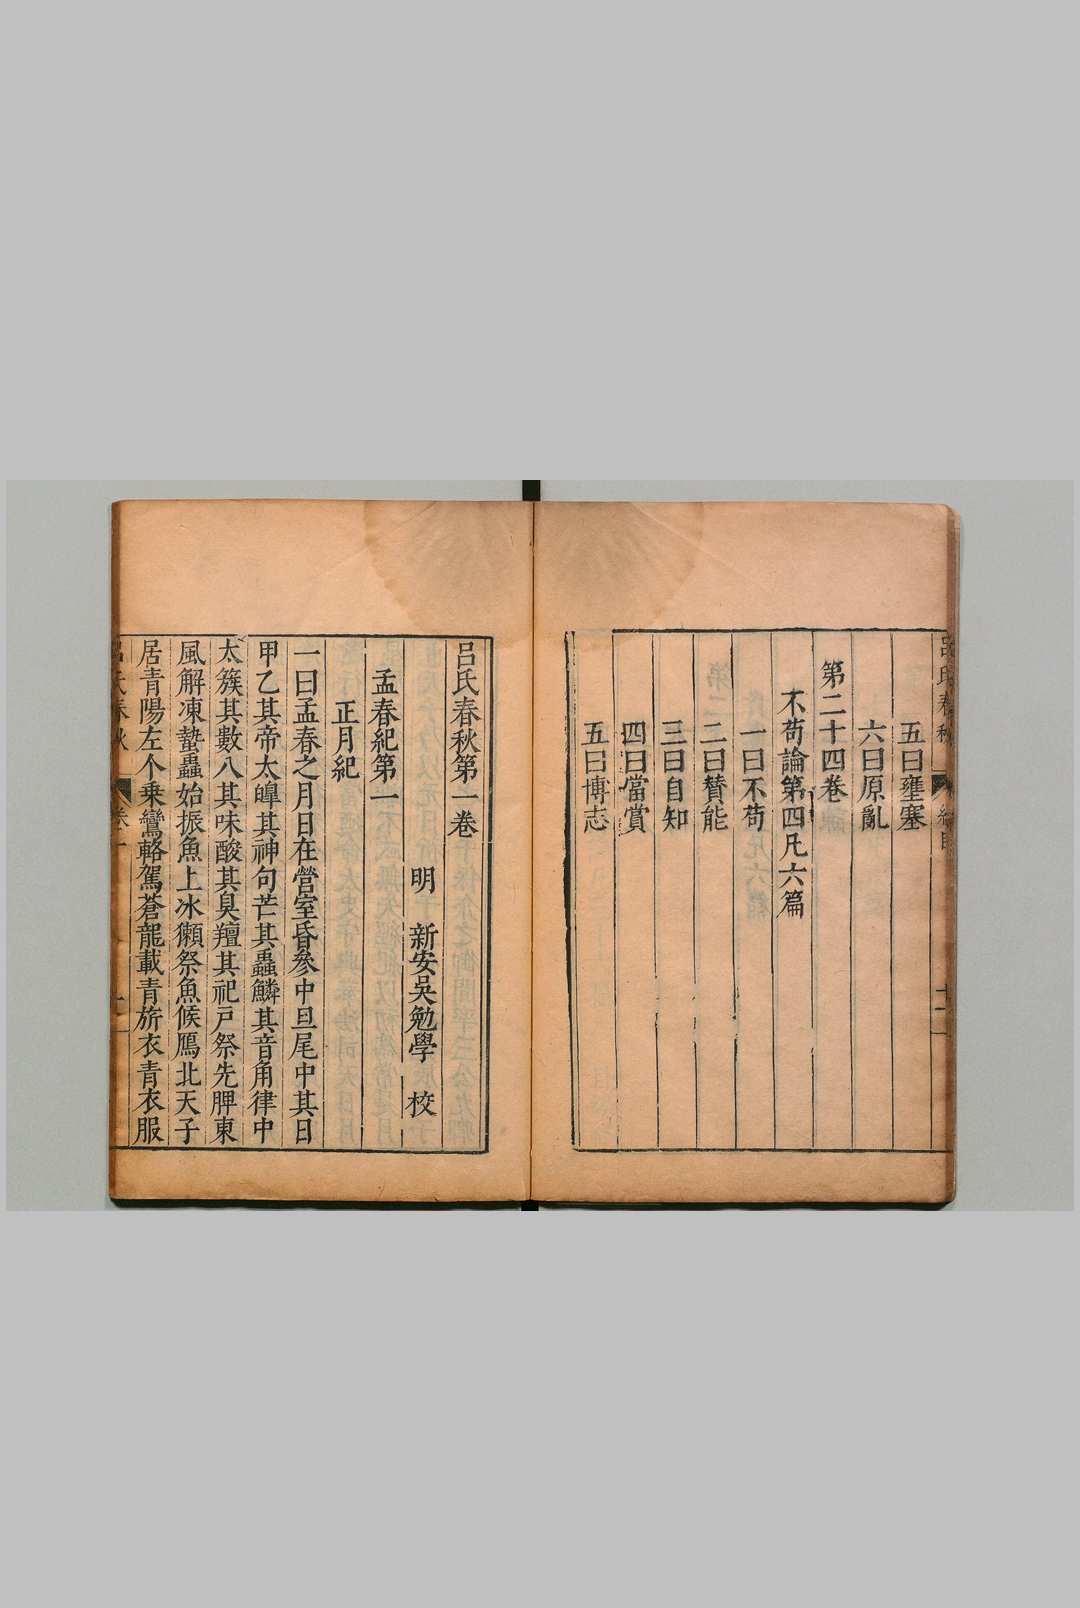 呂氏春秋
總目
十二
五曰壅塞
六曰原亂
第二十四卷
不茍論第四凡六篇
一曰不茍
二曰賛能
三曰自知
四曰當賞
五曰博志
呂氏春秋第一卷
明 新安吳勉學 校
孟春紀第一
正月紀
一曰孟春之月日在營室昏參中旦尾中其日
甲乙其帝太皥其神句芒其蟲鱗其音角律中
太簇其數八其味酸其臭羶其祀戸祭先脾東
風解凍蟄蟲始振魚上冰獺祭魚候鴈北天子
居青陽左个乗鸞輅駕蒼龍載青旂衣青衣服
呂氏春秋
卷一
一